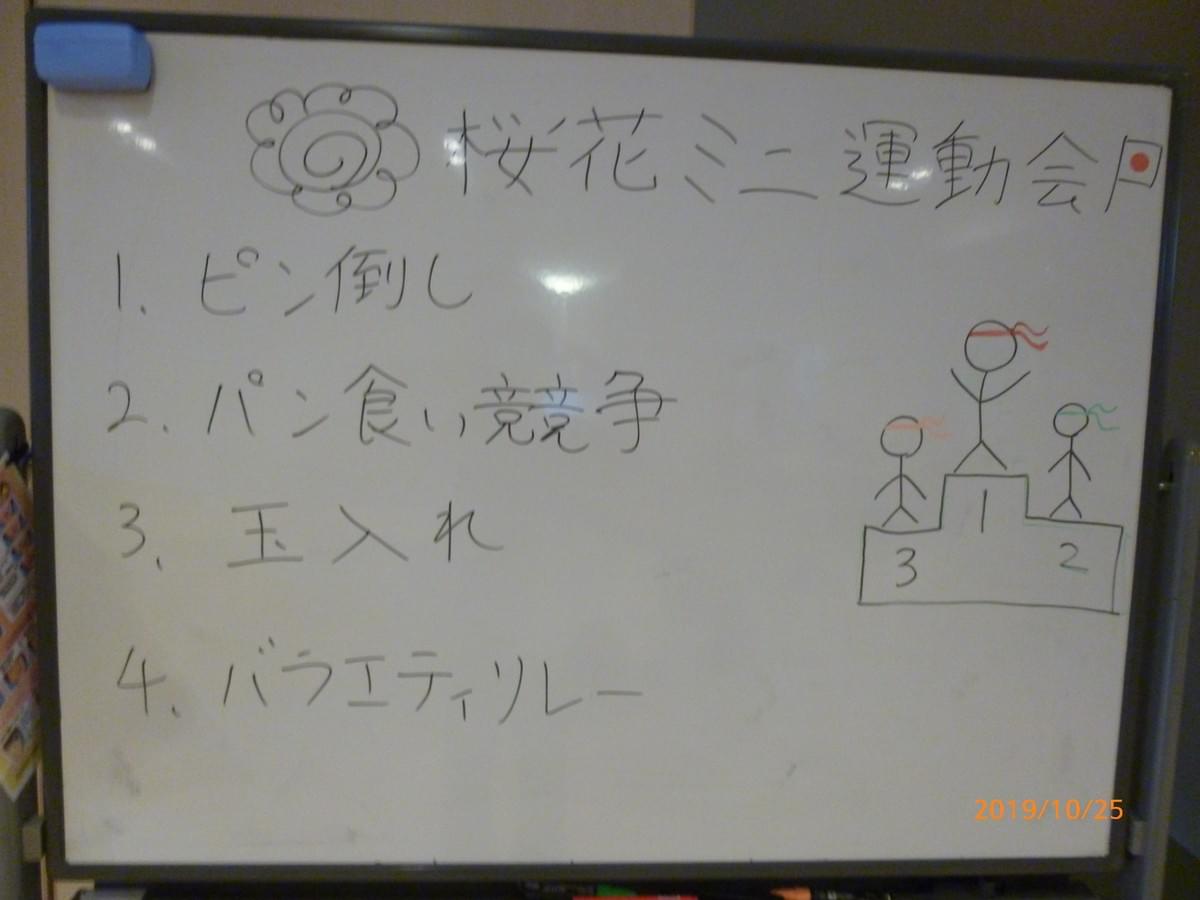 桜花ミニ運動会
1. ピン倒し
2. パン食い競争
3. 玉入れ
4. バラエティリレー
1
3
2
2019/10/25